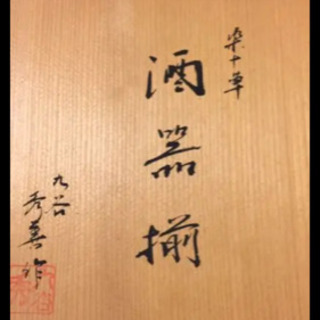 染十草
酒器揃
九谷
秀喜作